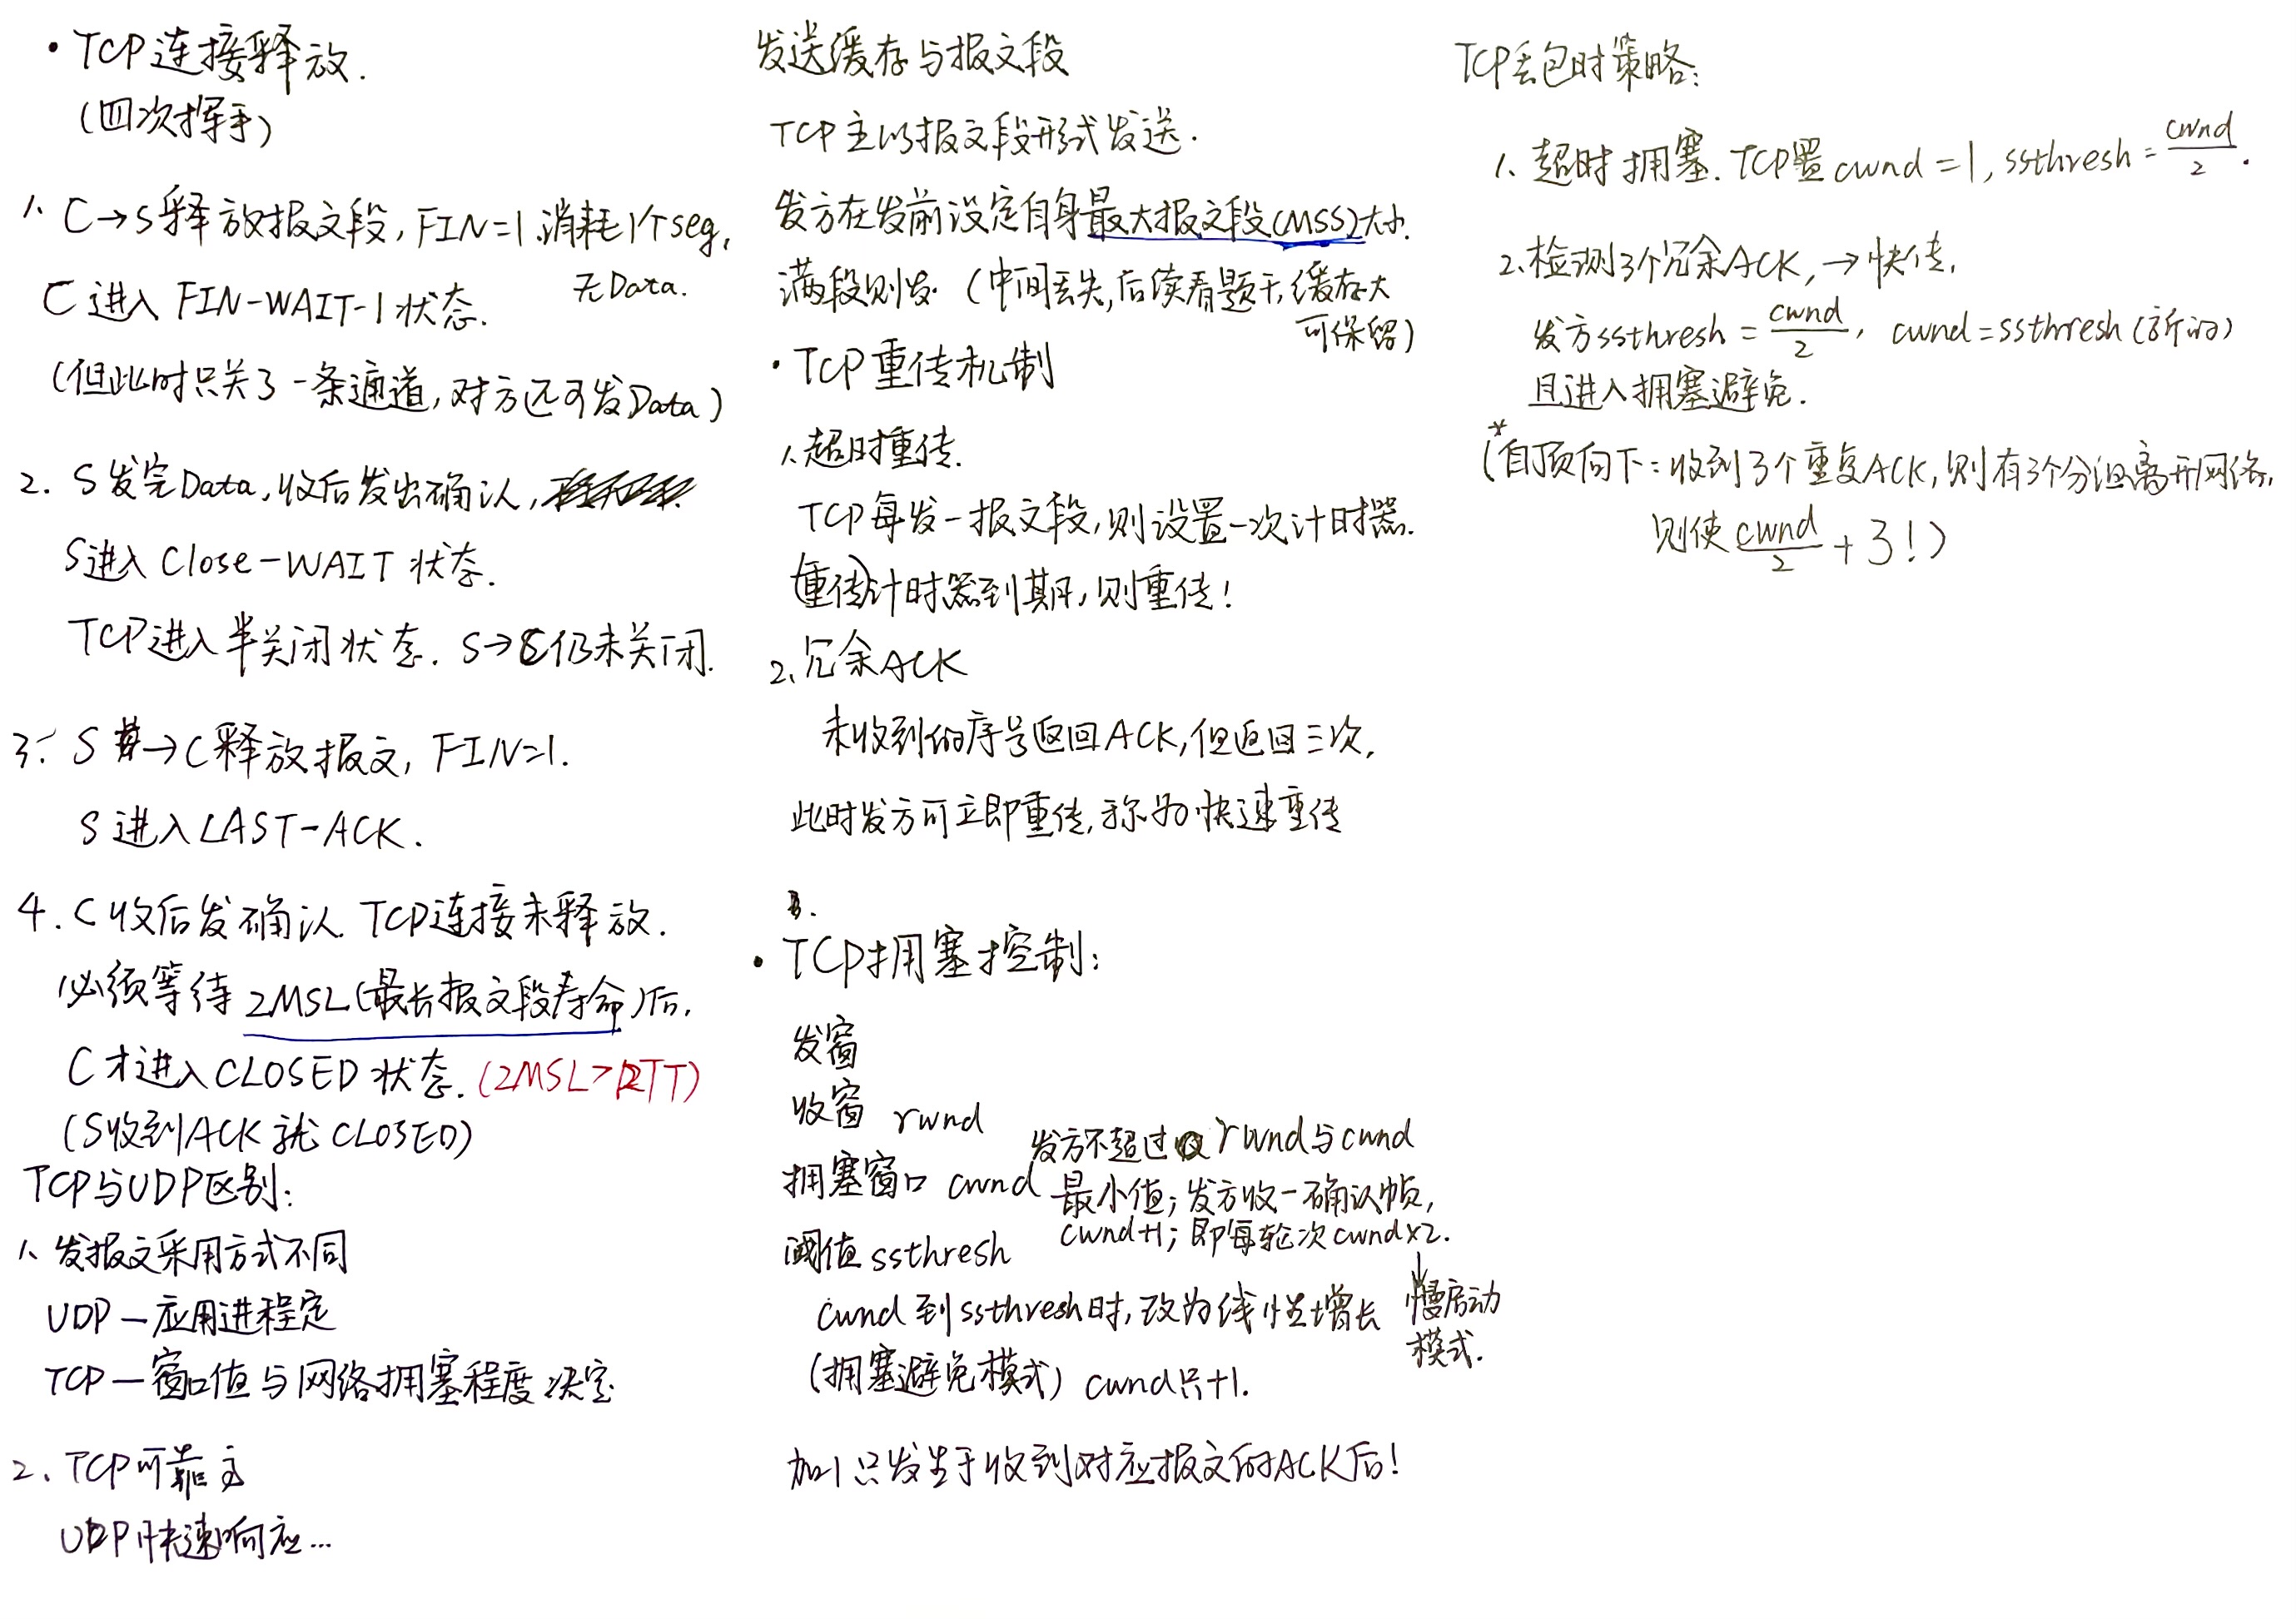 ·TCP连接释放.
(四次挥手)
1、C→S释放报文段,FIN=1.消耗1个seg,
无Data.
C进入FIN-WAIT-1状态.
(但此时只关了一条通道,对方还可发Data)
2. S发完Data,收后发出确认,
S进入Close-WAIT状态.
TCP进入半关闭状态. S→C仍未关闭.
3. S→C释放报文, FIN=1.
S进入LAST-ACK.
4. C收后发确认. TCP连接未释放.
必须等待2MSL(最长报文段寿命)后,
C才进入CLOSED状态. (2MSL>RTT)
(S收到ACK就CLOSED)
TCP与UDP区别:
1、发报文采用方式不同
UDP—应用进程定
TCP—窗口值与网络拥塞程度决定
2、TCP可靠主
UDP快速响应...
发送缓存与报文段
TCP主以报文段形式发送.
发方在发前设定自身最大报文段(MSS)大小.
满段则发. (中间丢失,后续看题干,缓存大
可保留)
·TCP重传机制
1、超时重传.
TCP每发一报文段,则设置一次计时器.
(重传)计时器到期,则重传!
2、冗余ACK
未收到的序号返回ACK,但返回三次,
此时发方可立即重传,称为快速重传
3.
·TCP拥塞控制:
发窗
收窗 rwnd
拥塞窗口 cwnd
阈值ssthresh
发方不超过rwnd与cwnd
最小值;发方收一确认帧,
cwnd+1;即每轮次cwnd×2.
↓
慢启动
模式.
cwnd到ssthresh时,改为线性增长
(拥塞避免模式) cwnd只+1.
加1只发生于收到对应报文的ACK后!
TCP丢包时策略:
1、超时拥塞.TCP置cwnd=1,ssthresh=cwnd/2.
2、检测3个冗余ACK,→快传,
发方ssthresh=cwnd/2, cwnd=ssthresh(新的)
且进入拥塞避免.
*
(自顶向下:收到3个重复ACK,则有3个分组离开网络,
则使cwnd/2+3!)